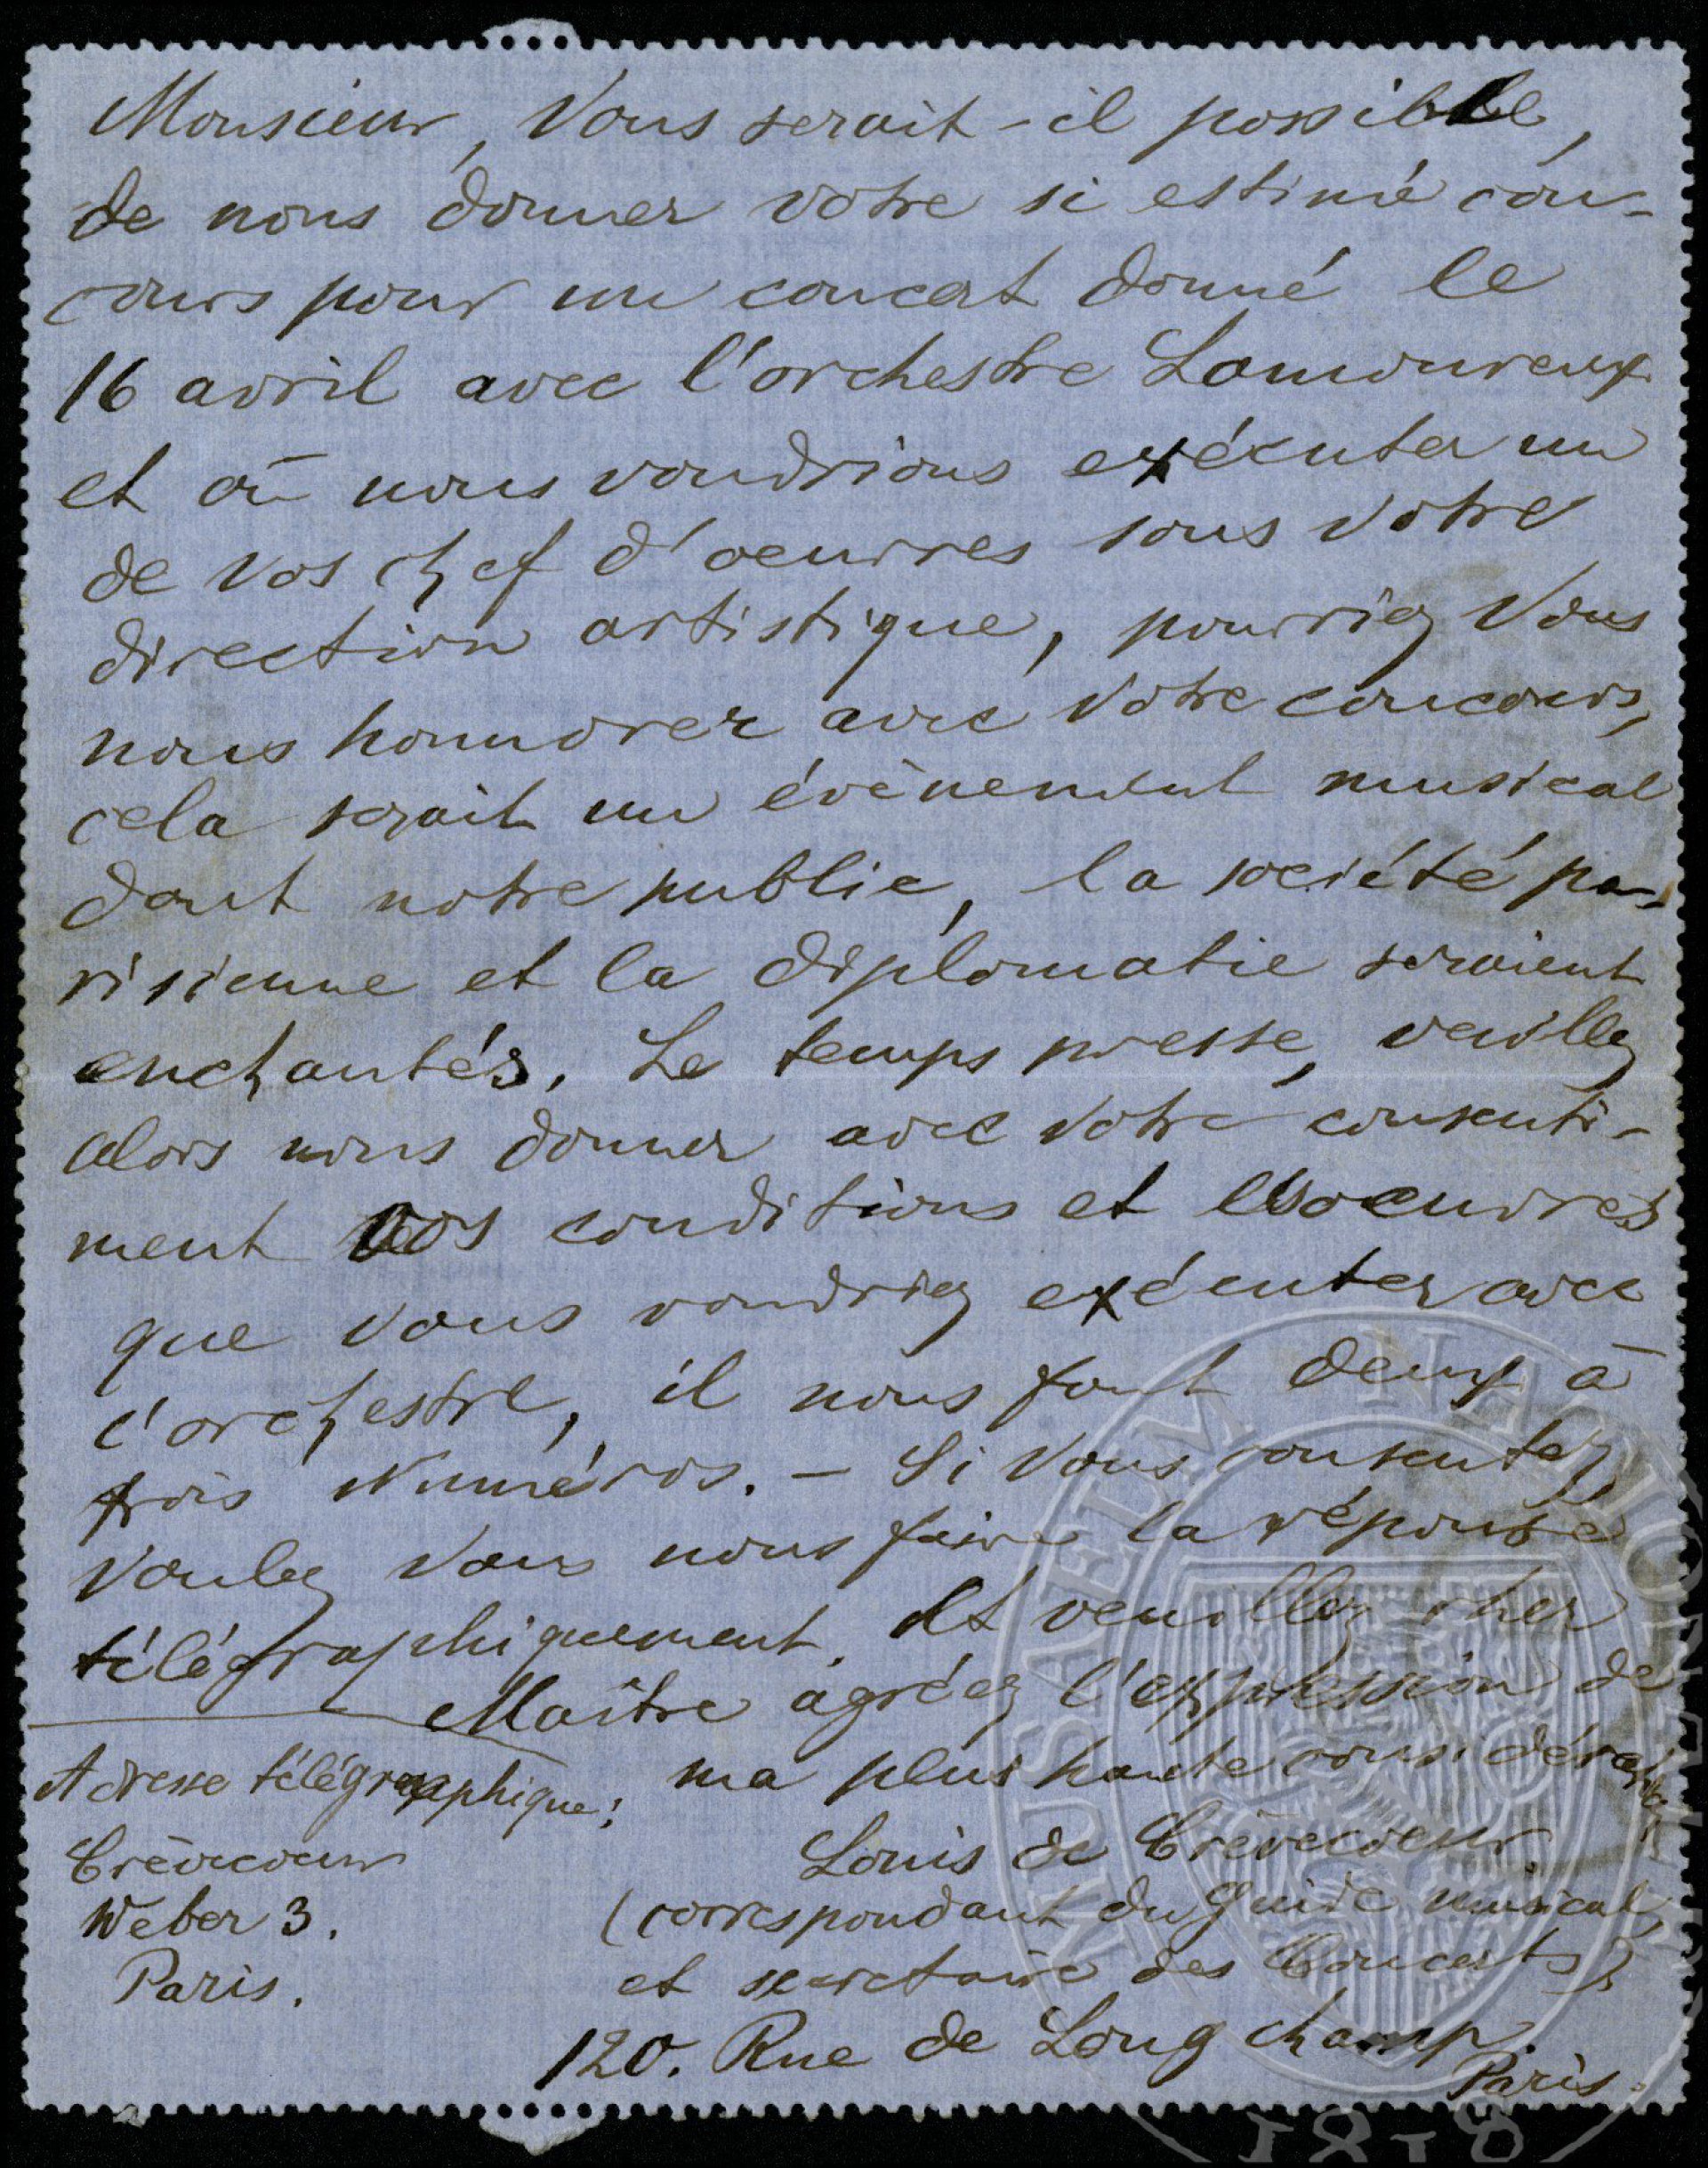 Monsieur, Vous serait-il possible,
de nous donner votre si estimé con-
cours pour un concert donné le
16 avril avec l'orchestre Lamoureux
et où nous voudrions exécuter un
de vos chef d'oeuvres sous votre
direction artistique, pourriez Vous
nous honnorer avec Votre concours,
cela serait un évènement musical
dont notre public, la société pa-
risienne et la diplomatie seraient
enchantés. Le temps presse, veuillez
alors nous donner avec Votre consenti-
ment vos conditions et les oeuvres
que Vous voudriez exécuter avec
l'orchestre, il nous faut deux à
trois Numéros. — Si Vous consentez,
voulez Vous nous faire la réponse
télégraphiquement. Et veuillez cher
Maître agréez l'expression de
ma plus haute considération
Louis de Crèvecoeur.
(correspondant du Guide musical,
et secretaire des Concerts)
120. Rue de Longchamp.
Paris.
Adresse télégraphique:
Crèvecoeur
Weber 3.
Paris.
MUSAEUM NATIONALE
1818